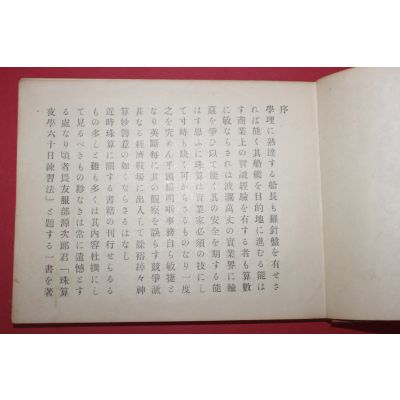 序
學理に熟達する船長も羅針盤を有せさ
れば能く其船艦を目的地に進むる能は
す商業上の習識經驗を有する者も算數
に敏ならされは波瀾萬丈の實業界に輸
贏を爭ひ以て能く其の安全を期する能
はす思ふに珠算は實業家必須の技にし
て寸時も缺く可からさるものなり一度
之を究めん乎頭腦明哦事務自ら敏捷と
なり英斷每に其の觀察を誤らす競爭激
甚なる經濟戰場に出入して餘裕綽々神
算妙籌意の如くならさるはなし
近時珠算に關する書籍の刊行せらるる
もの多しと雖も多くは其内容杜撰にし
て見るべきもの尠なきは常に遺憾とす
る處なり頃者畏友服部源次郎君「珠算
夜學六十日練習法」と題する一書を著